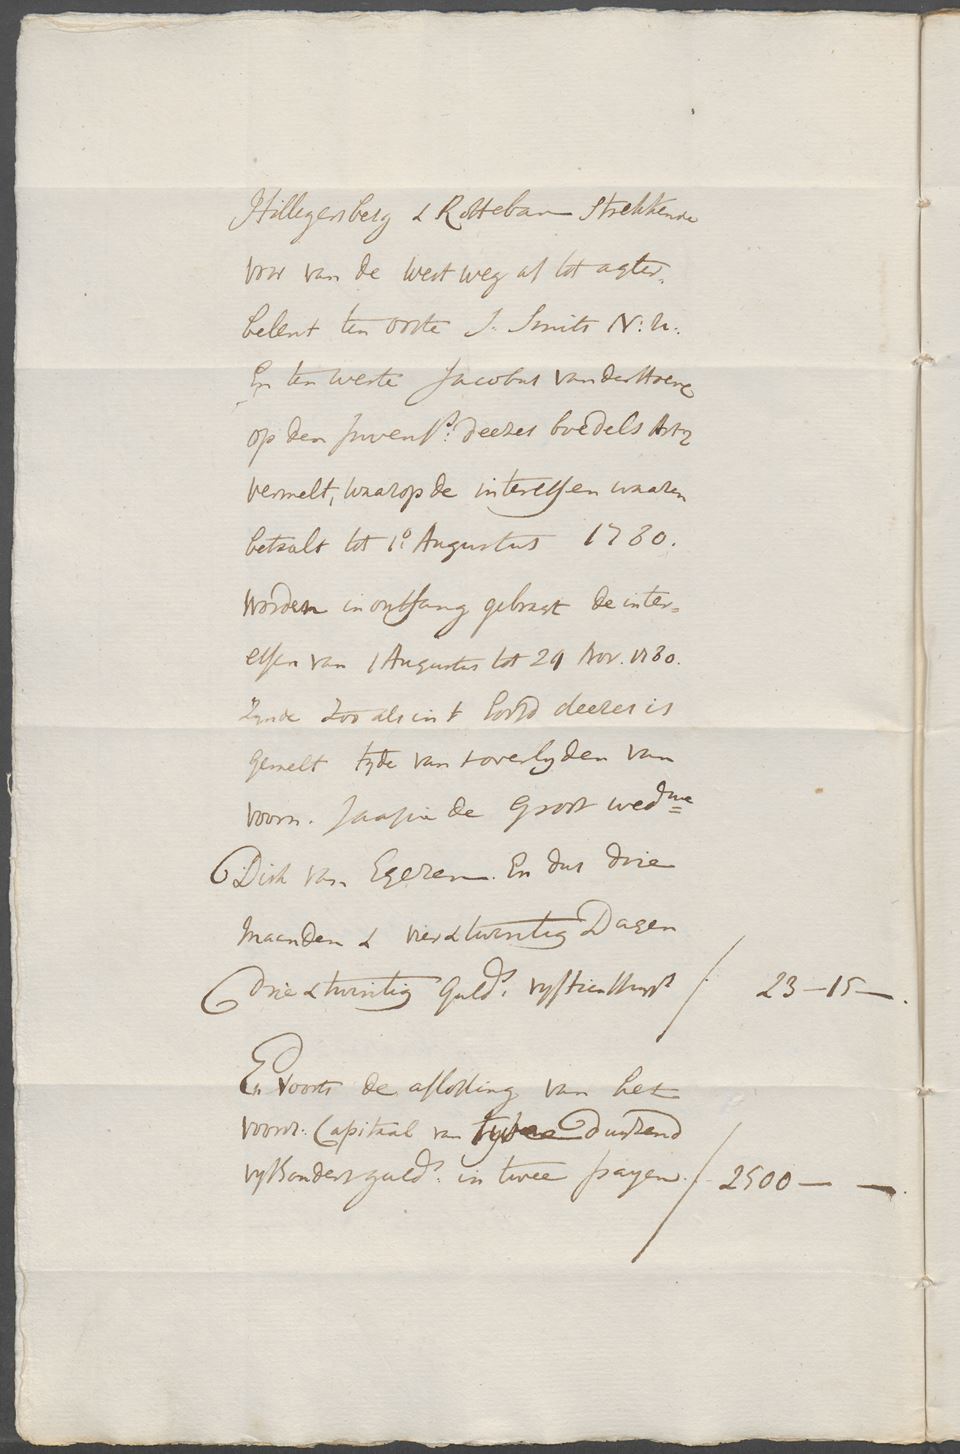 Hillegersberg & Rotteban Strekkende
voor van de west weg af tot agter,
belent ten ooste J. Smits N: u:
En ten weste Jacobus van der Hoeve
op den Invents: deezes boedels Art 2
vermelt, waarop de interessen waaren
betaalt tot 1o Augustus 1780.
worden in ontfang gebragt de inter=
essen van 1 Augustus tot 24 Nov. 1780.
Zynde Zoo als in 't hoofd deezes is
gemelt tyde van 't overlyden van
voorn. Jaapie de Groot wedue
Dirk van Egezen. En dus drie
maanden & vier & twintig Dagen
Drie & twintig Guld: vyftien stuyv / 23-15-.
En voorts de aflossing van het
voorn: Capitaal van twee Duizend
vyfhondert guld: in twee payen. / 2500- -.